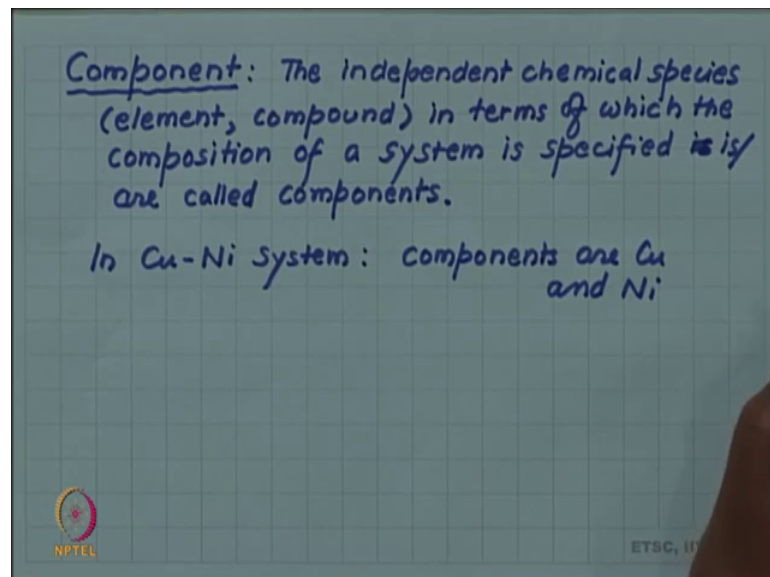 Component: The independent chemical species
(element, compound) in terms of which the
composition of a system is specified is/
are called components.
In Cu-Ni system: components are Cu
and Ni
NPTEL
ETSC,